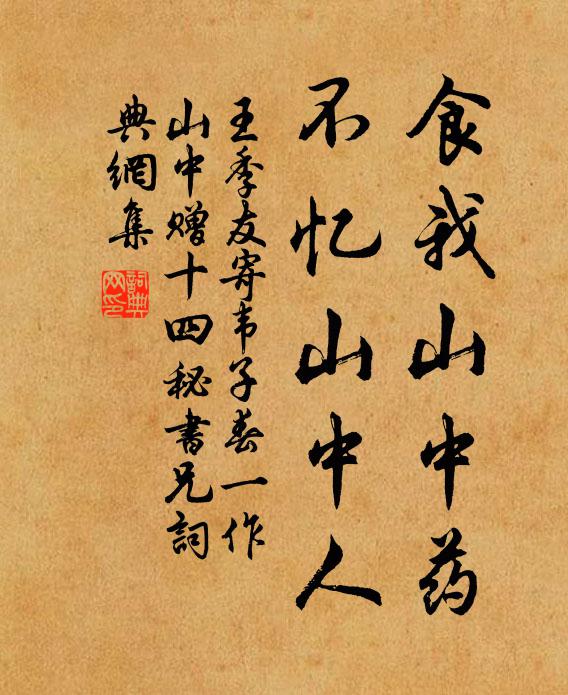 食我山中药
不忆山中人
王季友寄韦子春一作
山中赠十四秘書兄詞
典網集
詞典网印